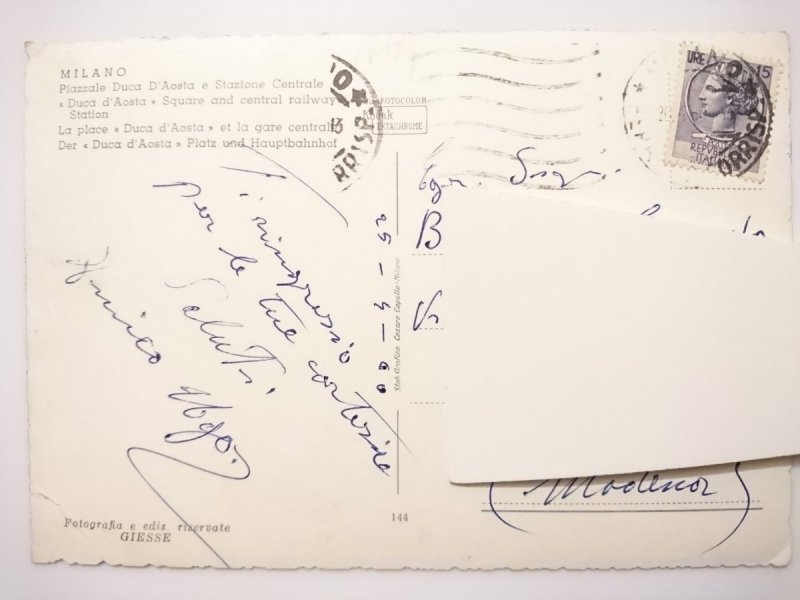 MILANO
Piazzale Duca D'Aosta e Stazione Centrale
« Duca d'Aosta » Square and central railway
Station
La place « Duca d'Aosta » et la gare centrale
Der « Duca d'Aosta » Platz und Hauptbahnhof
FOTOCOLOR
Kodak
EKTACHROME
13
LIRE 15
REPUBBLICA
ITALIANA
Egr. Sig.
B
V
(Modena)
Ti ringrazio
per le tue cortesie
Saluti
Amico Ugo.
25-3-60
Stab. Grafico Cesare Capello - Milano
Fotografia e ediz. riservate
GIESSE
144